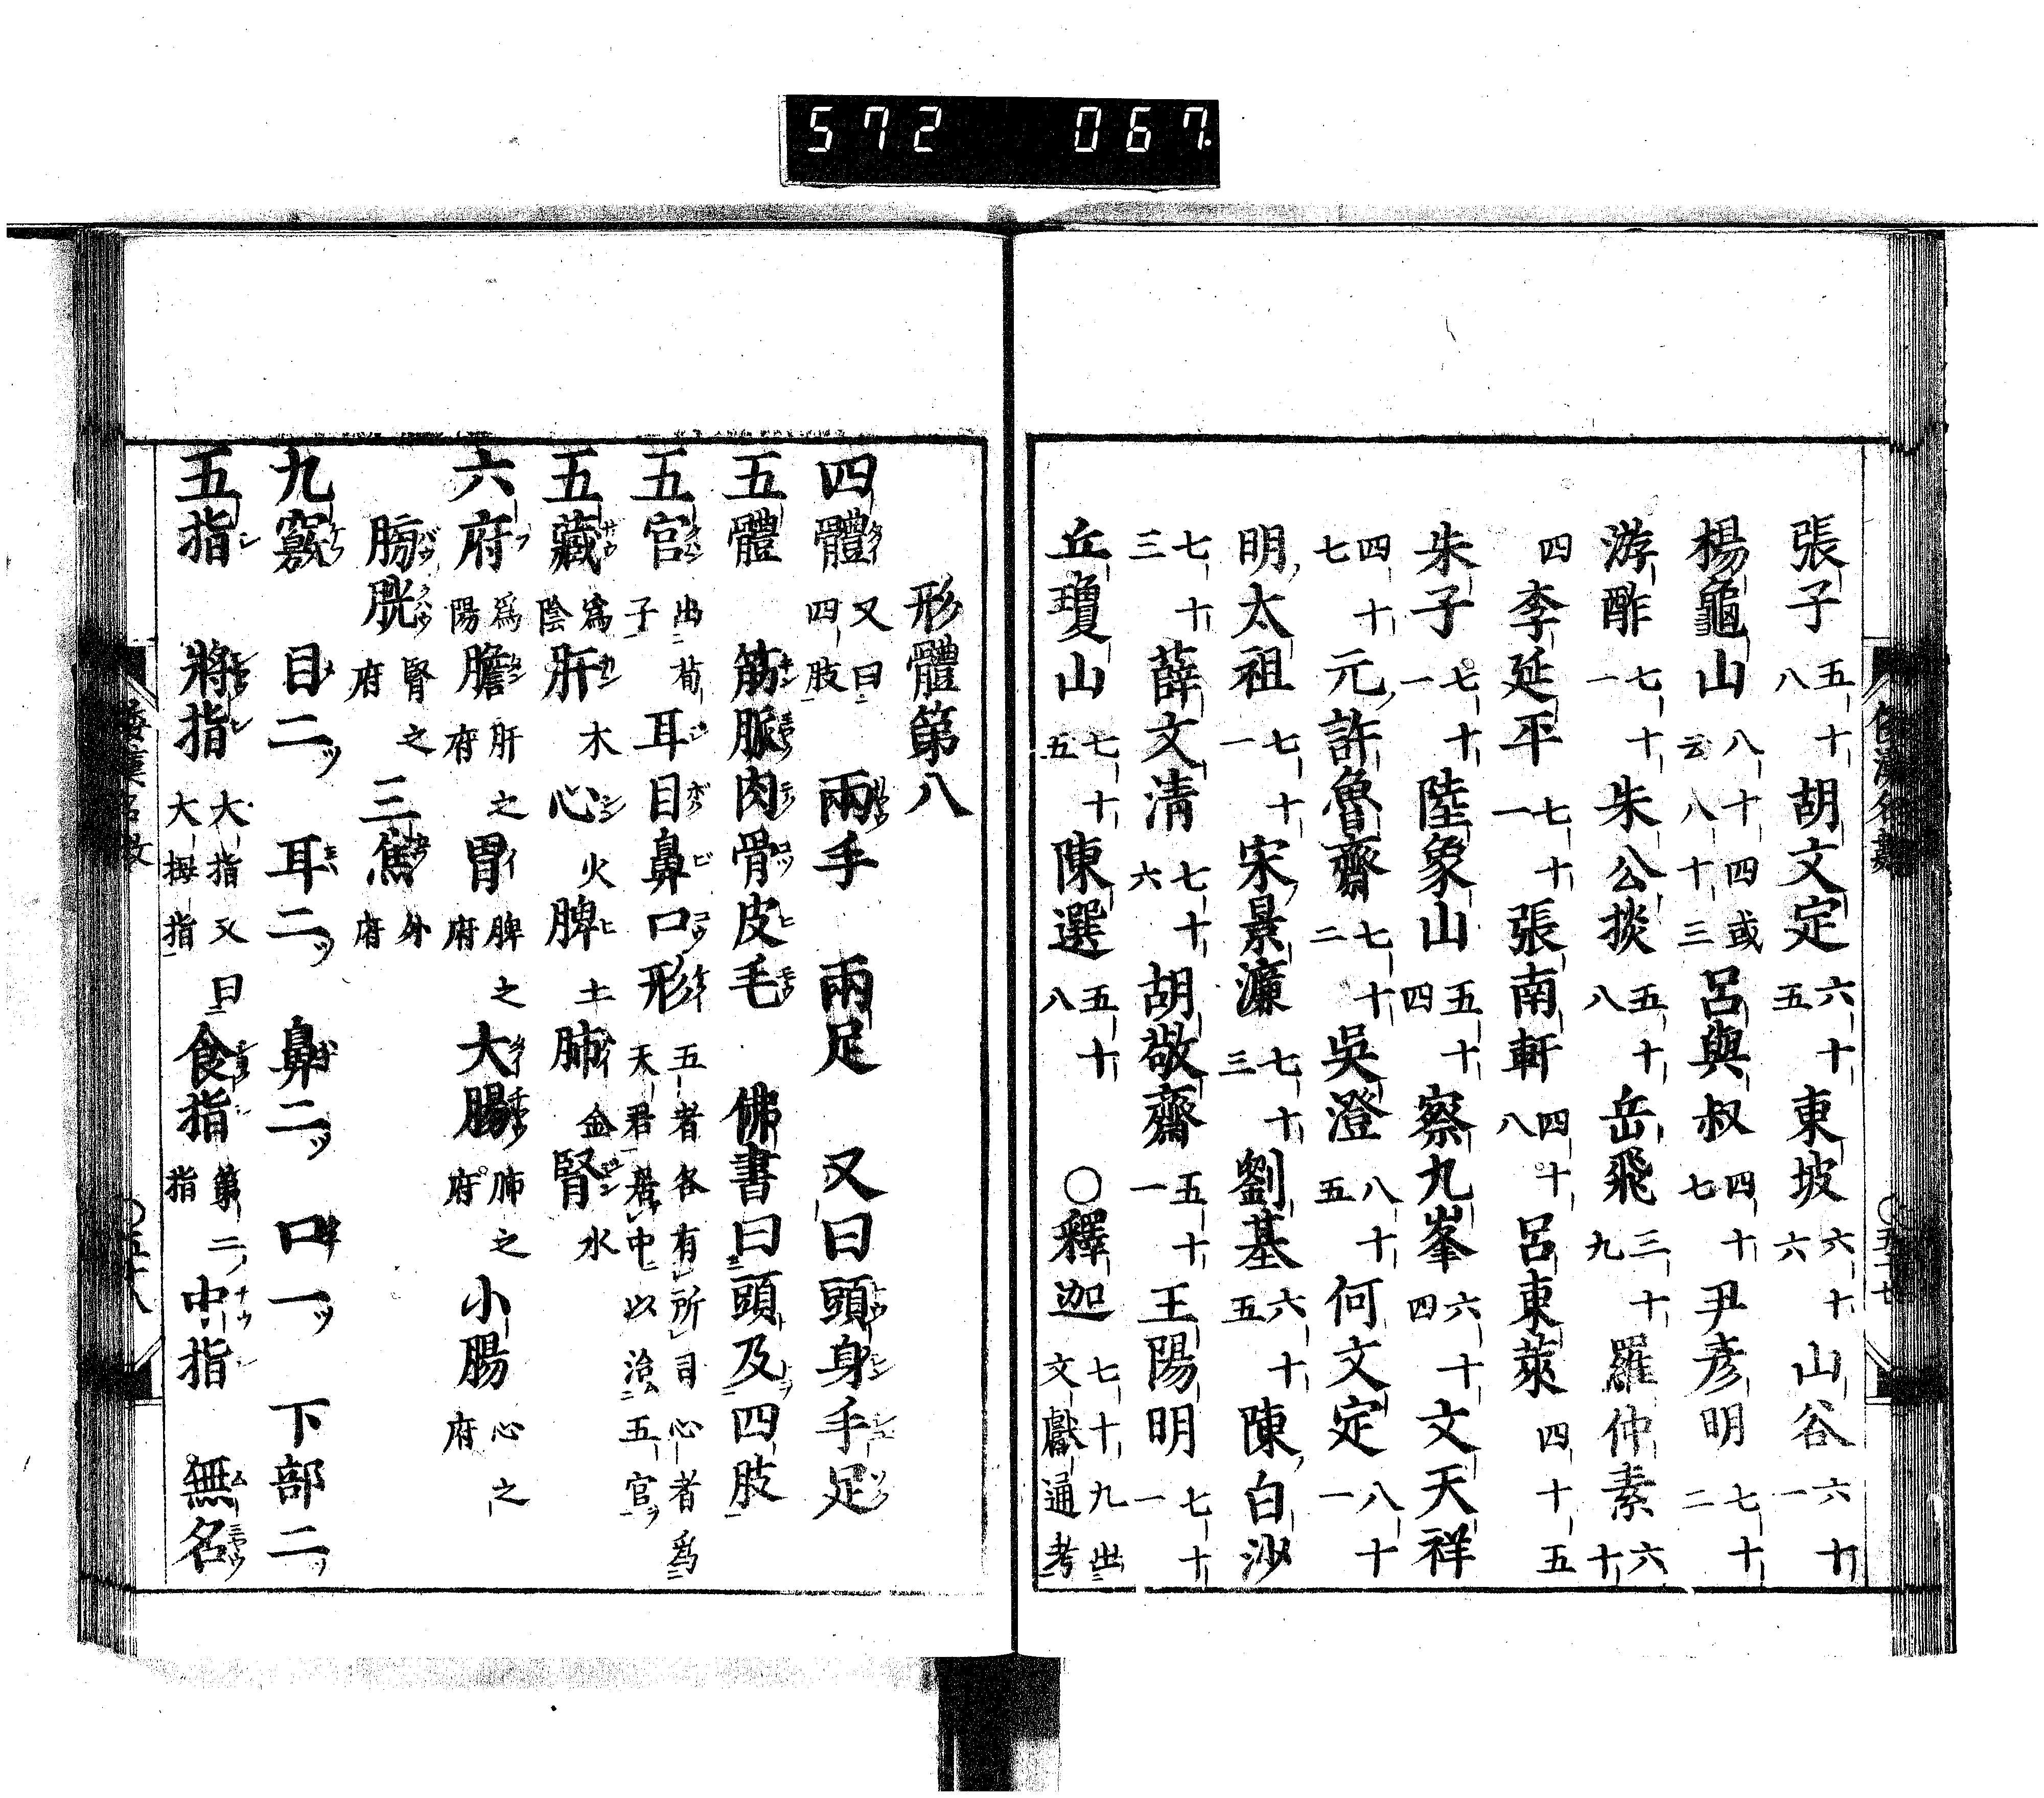 572 067.
張子五十八 胡文定六十五 東坡六十六 山谷六十一
楊龜山八十四或云八十三 呂與叔四十七 尹彦明七十二
游酢七十一 朱公掞五十八 岳飛三十九 羅仲素六十
四 李延平七十一 張南軒四十八 呂東萊四十五
朱子七十一 陸象山五十四 察九峯六十四 文天祥
四十七 元許魯齋七十二 吳澄八十五 何文定八十一
明太祖七十一 宋景濂七十三 劉基六十五 陳白沙
七十三 薛文清七十六 胡敬齋五十一 王陽明七十一
丘瓊山七十五 陳選五十八 ○釋迦七十九出文獻通考
形體第八
四體又曰四肢 兩手 兩足 又曰頭身手足
五體 筋脈肉骨皮毛 佛書曰頭及四肢
五官出荀子 耳目鼻口形五者各有所司心者爲天君居中以治五官
五藏爲陰 肝木 心火 脾土 肺金 腎水
六府爲陽 膽肝之府 胃脾之府 大腸肺之府 小腸心之府
膀胱腎之府 三焦外府
九竅 目二ツ 耳二ツ 鼻二ツ 口一ツ 下部二ツ
五指 將指大指又曰大拇指 食指第二ノ指 中指 無名